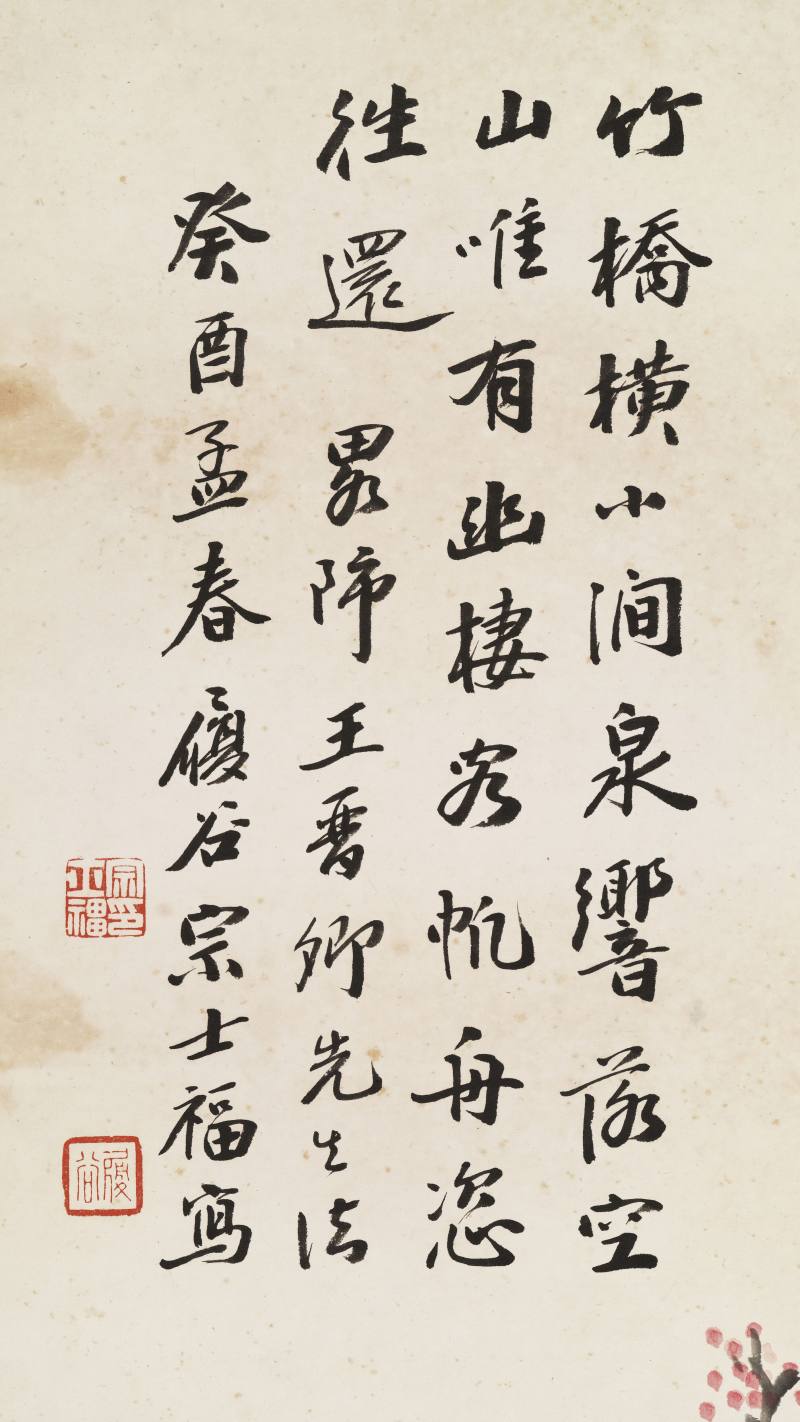 竹橋橫小澗泉響落空
山唯有幽棲客帆舟恣
徃還 畧師王晉卿先生法
癸酉孟春履谷宗士福寫
宗印士福
履谷